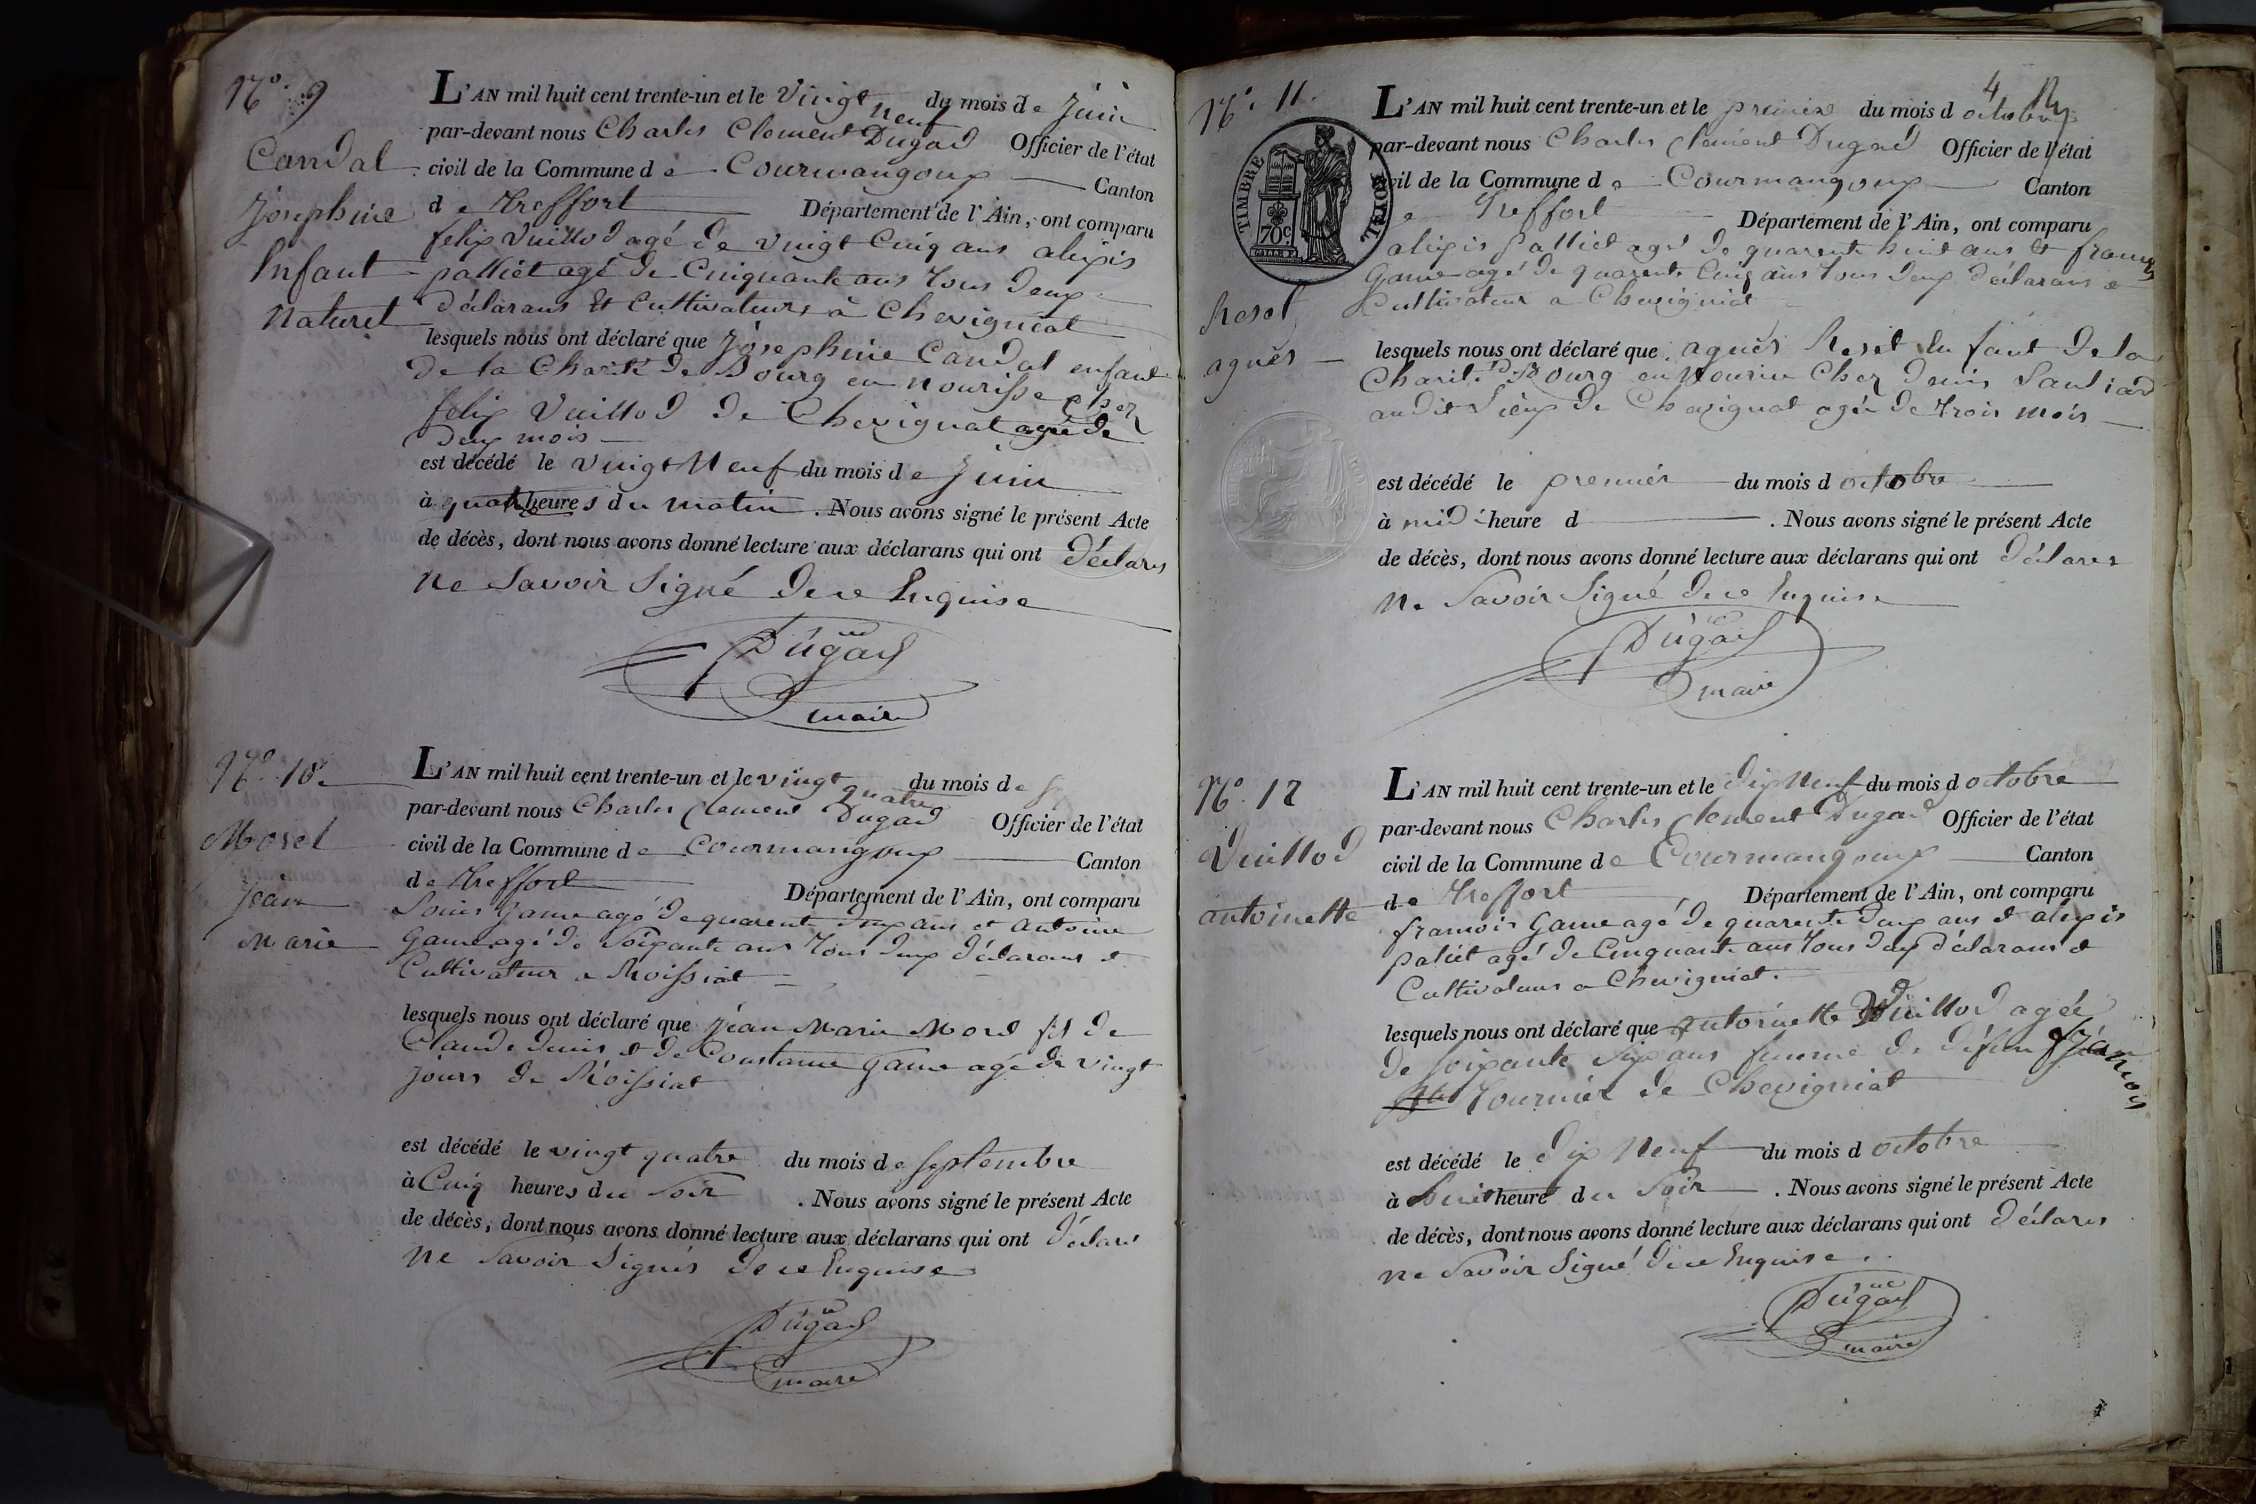 N.° 9
Candal
Josephine
Enfant
Naturel
L'AN mil huit cent trente-un et le vingt neuf du mois de Juin
par-devant nous Charles Clement Dugad Officier de l'état
civil de la Commune de Courmangoux Canton
de Treffort Département de l'Ain, ont comparu
felix Vuillod agé de vingt Cinq ans alexis
palliet agé de Cinquante ans tous deux
déclarans et Cultivateurs à Chevigniat
lesquels nous ont déclaré que Josephine Candal enfant
de la Charité de Bourg en nourisse chez
felix Vuillod de Chevignat agée de
deux mois
est décédé le vingt Neuf du mois de Juin
à quatre heures du matin. Nous avons signé le présent Acte
de décès, dont nous avons donné lecture aux déclarans qui ont déclarés
ne Savoir Signé de ce Enquise
Dugad
maire
N.° 10.
Morel
Jean
Marie
L'AN mil huit cent trente-un et le vingt quatre du mois de
par-devant nous Charles Clement Dugad Officier de l'état
civil de la Commune de Courmangoux Canton
de Treffort Département de l'Ain, ont comparu
Louis Game agé de quarente deux ans et antoine
Game agé de Soixante ans tous deux déclarans et
Cultivateur a Roissiat
lesquels nous ont déclaré que Jean Marie Morel fils de
Claude denis et de Constance Game agé de vingt
jours de Roissiat
est décédé le vingt quatre du mois de Septembre
à Cinq heures du Soir. Nous avons signé le présent Acte
de décès, dont nous avons donné lecture aux déclarans qui ont déclaré
ne Savoir Signés de ce Enquise
Dugad
maire
4
N.° 11.
TIMBRE ROYAL
70c.
Resel
agnès
L'AN mil huit cent trente-un et le premier du mois d octobre
par-devant nous Charles Clement Dugad Officier de l'état
civil de la Commune de Courmangoux Canton
de Treffort Département de l'Ain, ont comparu
alexis palliet agé de quarente huit ans et francois
Game agé de quarente Cinq ans tous deux déclarans e
Cultivateur a Chevigniat
lesquels nous ont déclaré que agnès Resel enfant de la
Charité de Bourg en Nourice Chez denis
audit Lieux de Chevignat agée de trois mois
est décédé le premier du mois d octobre
à midi heure d. Nous avons signé le présent Acte
de décès, dont nous avons donné lecture aux déclarans qui ont déclarer
ne Savoir Signé de ce Enquise
Dugad
maire
N.° 12
Vuillod
antoinette
L'AN mil huit cent trente-un et le dix Neuf du mois d octobre
par-devant nous Charles Clement Dugad Officier de l'état
civil de la Commune de Courmangoux Canton
de Treffort Département de l'Ain, ont comparu
francois Game agé de quarente deux ans et alexis
paliet agé de Cinquante ans tous deux déclarans et
Cultivateurs a Chevigniat.
lesquels nous ont déclaré que antoinette Vuillod agée
de Soixante Six ans femme de défun francois
Tournier de Chevigniat
est décédé le dix Neuf du mois d octobre
à huit heure du Soir. Nous avons signé le présent Acte
de décès, dont nous avons donné lecture aux déclarans qui ont déclarés
ne Savoir Signé de ce Enquise.
Dugad
maire